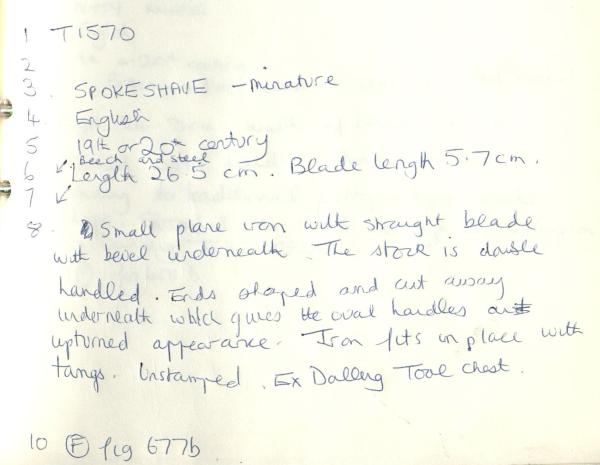 1 T1570
2
3. SPOKESHAVE - minature
4. English
5 19th or 20th century
Beech and steel
6 ✓ Length 26.5 cm. Blade length 5.7cm.
7 ✓
8. Small plane iron with straight blade
with bevel underneath. The stock is double
handled. Ends shaped and cut away
underneath which gives the oval handles an
upturned appearance. Iron fits in place with
tangs. Unstamped. Ex Dalling Tool Chest.
10 (F) fig 677b